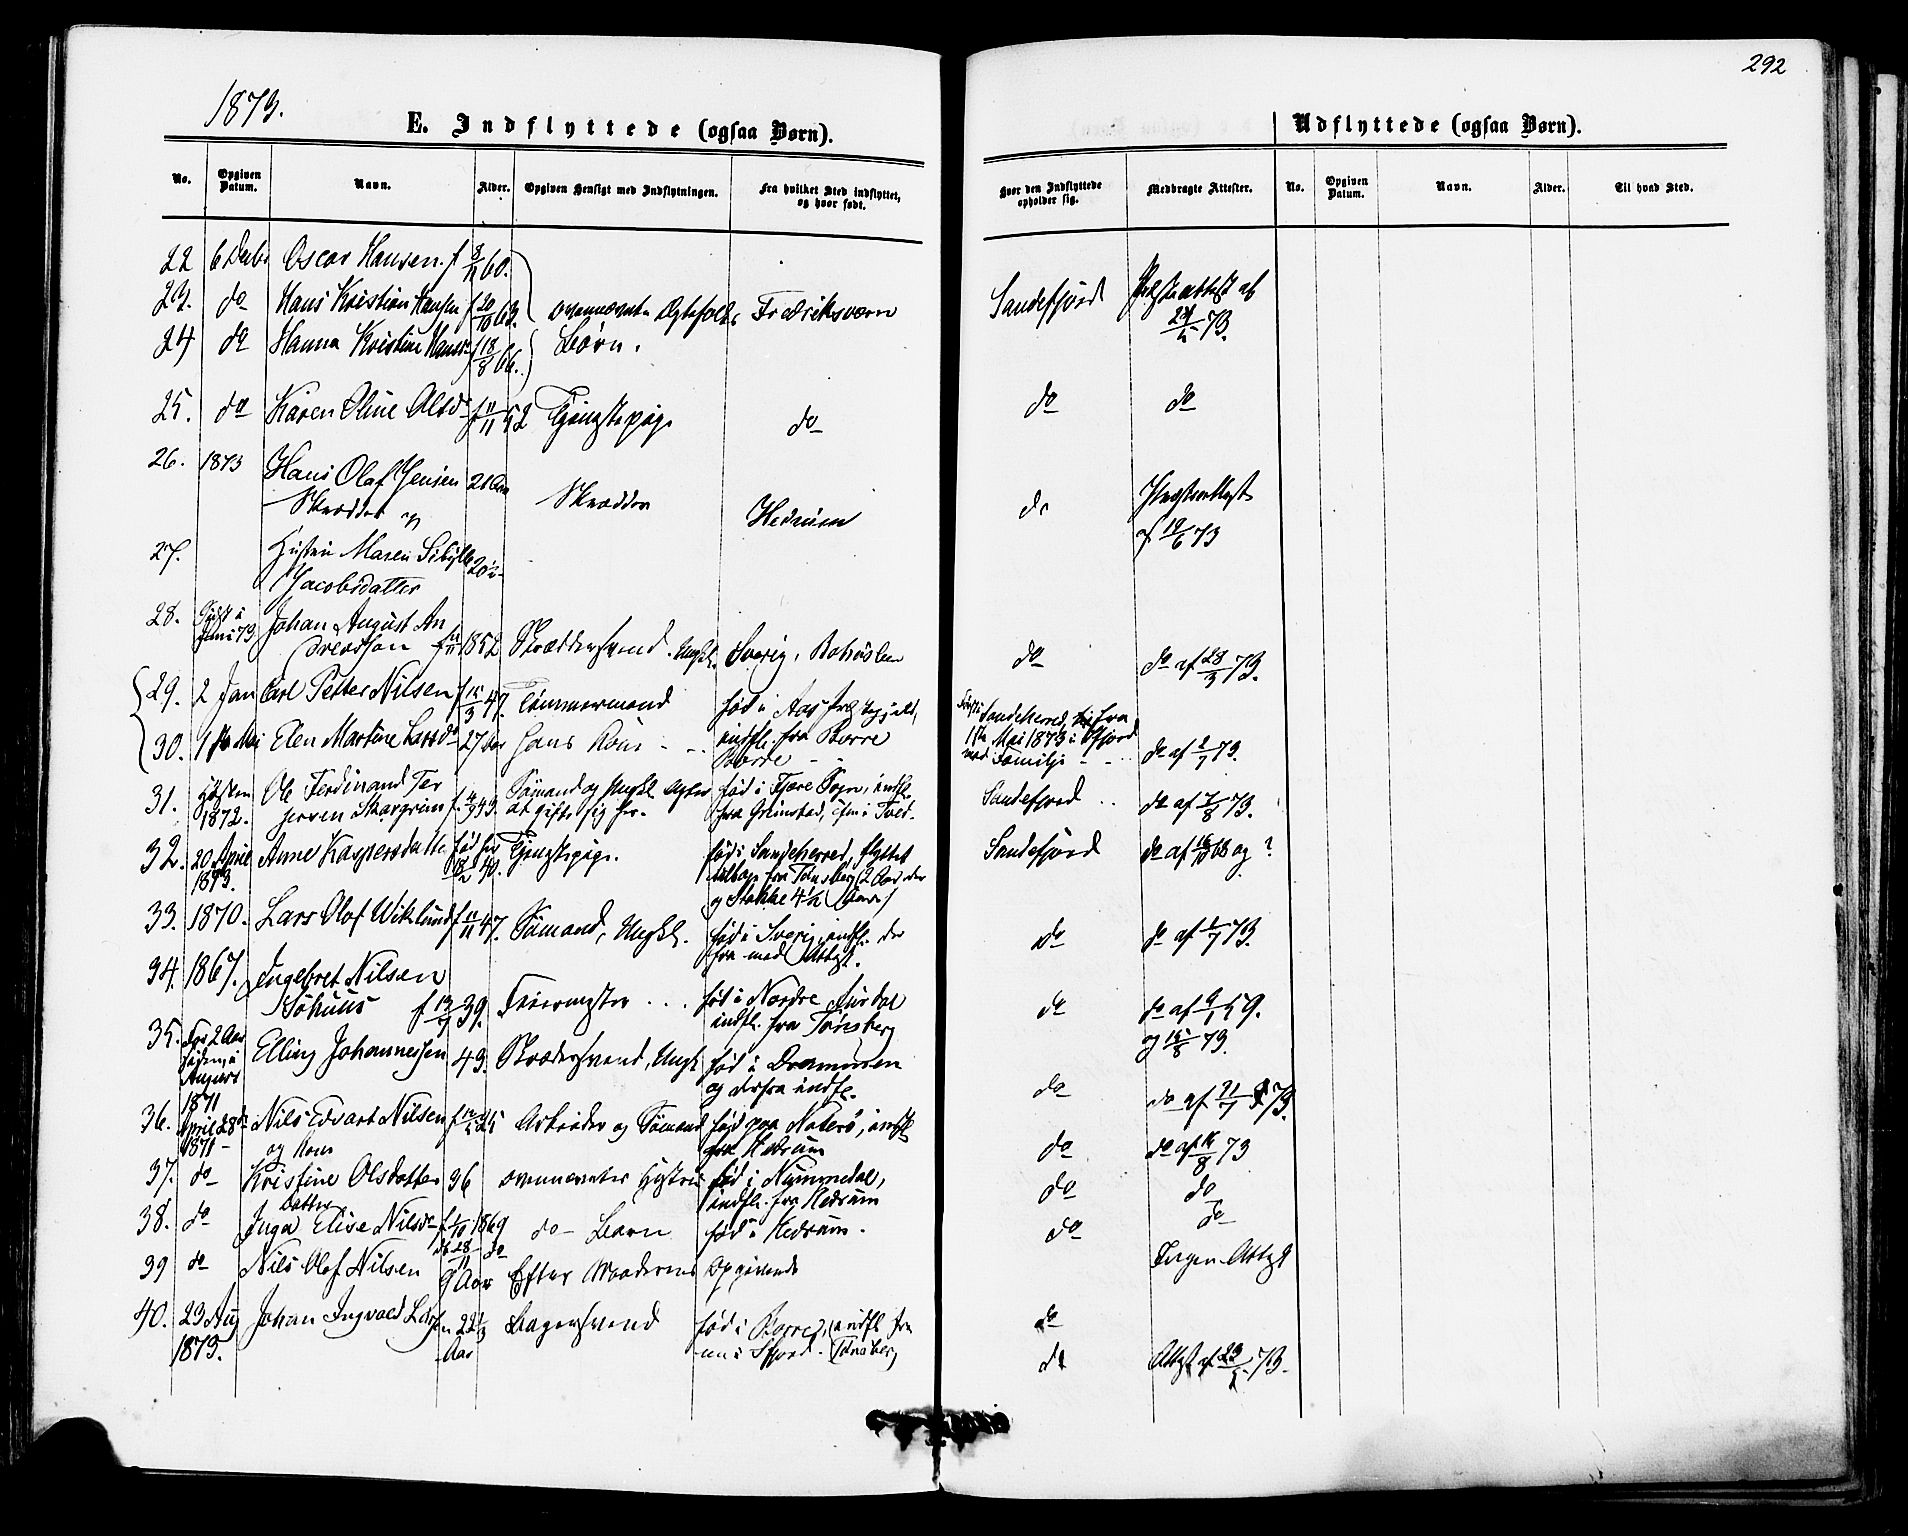 292
1873.
E. Indflyttede (ogsaa Børn). Udflyttede (ogsaa Børn).
No. Opgiven Datum. Navn. Alder. Opgiven Hensigt med Indflytningen. Fra hvilket Sted indflyttet, og hvor født. Hvor den Indflyttede opholder sig. Medbragte Attester. No. Opgiven Datum. Navn. Alder. Til hvad Sted.
22 6 Oscar Hansen. f 8/11 60.
23. do Hans Kristian Hansen f 20/10 63. ovennævnte Ægtefolks Fredriksværn Sandefjord Præsteattest af
24 do Hanna Kristine f 18/8 66. Børn. 73.
25. do Karen Oline Olsdr f 11/11 52 Tjenestepige do do do
26. 1873 Hans Olaf Jensen 21 Aar Skrædder Hedrum do Præsteattest
Skrædder og af 19/6 73
27. Hustru Maren 20 1/2
Jacobsdatter
28. Sidst i Juni 73 Johan August An
dreassen f 1852 Skræddersvend. Ungk. Sverig, Bohuslen do do af 28/3 73.
29. 2 Jan Carl Petter Nilsen f 15/3 47. Tømmermand fød i Aas
30. 1ste Mai Elen Martine Larsdr 27 Aar Hans Kone indfl. fra Borre
Borre
Sandeherred, fra
1ste Mai 1873 i Sfjord
med Familje do af 2/1 73.
31. Høsten 1872. Ole Ferdinand Ter
jersen f. 43. Sømand og Ungkl. agter fød i Fjære Sogn, indfl. Sandefjord do af 7/8 73.
at gifte sig her. fra Grimstad,
32. 20 April 1873. Anne Kaspersdatter fød 40. Tjenestepige. fød i Sandeherred, flyttet Sandefjord do af 68 og ?
tilbage fra Tønsberg (2 Aar der
og Stokke 4 1/2 Aar)
33. 1870. Lars Olof Wiklund f 11/11 47. Sømand, Ungkl. fød i Sverig, indfl. der do do af 1/7 73.
fra med Attest.
34. 1867. Ingebret Nilsen
f 39. fød i Nordre Aurdal do do af 9/1 59.
indfl. fra Tønsberg og 15/8 73.
35. For 2 Aar siden, i August 1871 Elling Johannessen 43. Skrædersvend, Ungk fød i Drammen do do af 21/7 73.
og derfra indfl.
36. April 28de 1871 Nils Edvart Nilsen f Arbeider og Sømand fød paa Nøterø, indfl do do af 15/8 73
og Kone fra Hedrum
37. do Kristine Olsdatter 36 ovennævntes Hustru fød i Nummedal, do do
Datter indfl. fra Hedrum
38. do Inga Elise Nilsdr f 1/10 1869 do Barn fød i Hedrum. do do
39 do Nils Olof Nilsen 9 Aar Efter Moderens Opgivende Ingen Attest
40. 23 Aug 1873. Johan Ingvald Larsen 22 1/3 Aar Bagersvend fød i Borre, indfl fra do
nu i Sfjord. Tønsberg do Attest af 23/8 73.